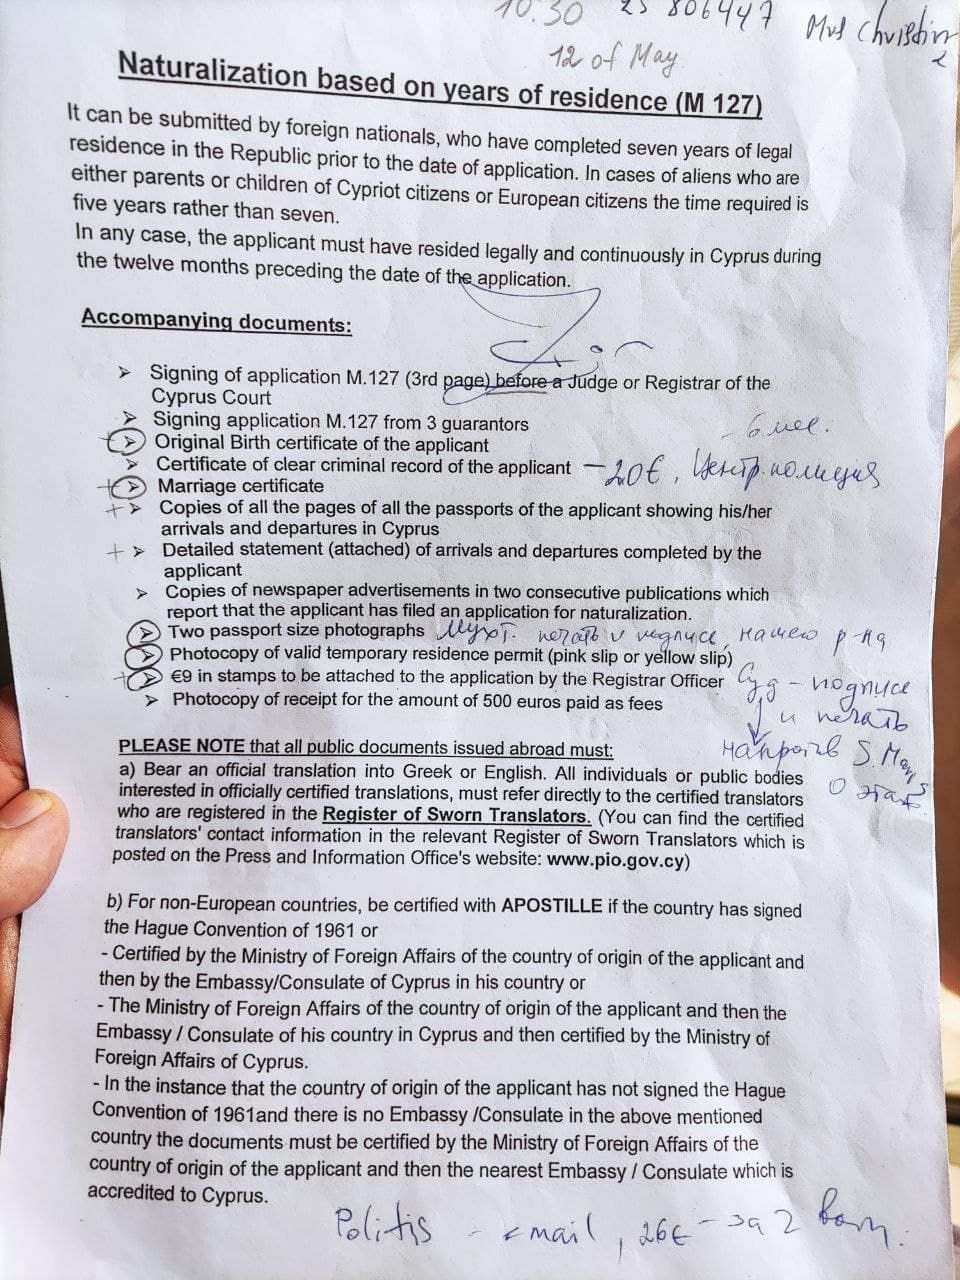 10.30 25 806447 Mrs Christin
12 of May
Naturalization based on years of residence (M 127)
It can be submitted by foreign nationals, who have completed seven years of legal
residence in the Republic prior to the date of application. In cases of aliens who are
either parents or children of Cypriot citizens or European citizens the time required is
five years rather than seven.
In any case, the applicant must have resided legally and continuously in Cyprus during
the twelve months preceding the date of the application.
Accompanying documents:
➢ Signing of application M.127 (3rd page) before a Judge or Registrar of the
Cyprus Court
➢ Signing application M.127 from 3 guarantors
- 6 мес.
+ ➢ Original Birth certificate of the applicant
➢ Certificate of clear criminal record of the applicant - 20€, Центр. полиция
+ ➢ Marriage certificate
+ ➢ Copies of all the pages of all the passports of the applicant showing his/her
arrivals and departures in Cyprus
+ ➢ Detailed statement (attached) of arrivals and departures completed by the
applicant
➢ Copies of newspaper advertisements in two consecutive publications which
report that the applicant has filed an application for naturalization.
➢ Two passport size photographs Мухт. печать и подписи, нашего р-на
➢ Photocopy of valid temporary residence permit (pink slip or yellow slip)
+ ➢ €9 in stamps to be attached to the application by the Registrar Officer Суд - подписи
➢ Photocopy of receipt for the amount of 500 euros paid as fees
и печать
напротив S.
0 этаж
PLEASE NOTE that all public documents issued abroad must:
a) Bear an official translation into Greek or English. All individuals or public bodies
interested in officially certified translations, must refer directly to the certified translators
who are registered in the Register of Sworn Translators. (You can find the certified
translators' contact information in the relevant Register of Sworn Translators which is
posted on the Press and Information Office's website: www.pio.gov.cy)
b) For non-European countries, be certified with APOSTILLE if the country has signed
the Hague Convention of 1961 or
- Certified by the Ministry of Foreign Affairs of the country of origin of the applicant and
then by the Embassy/Consulate of Cyprus in his country or
- The Ministry of Foreign Affairs of the country of origin of the applicant and then the
Embassy / Consulate of his country in Cyprus and then certified by the Ministry of
Foreign Affairs of Cyprus.
- In the instance that the country of origin of the applicant has not signed the Hague
Convention of 1961and there is no Embassy /Consulate in the above mentioned
country the documents must be certified by the Ministry of Foreign Affairs of the
country of origin of the applicant and then the nearest Embassy / Consulate which is
accredited to Cyprus.
Politis - email, 26€ - за 2